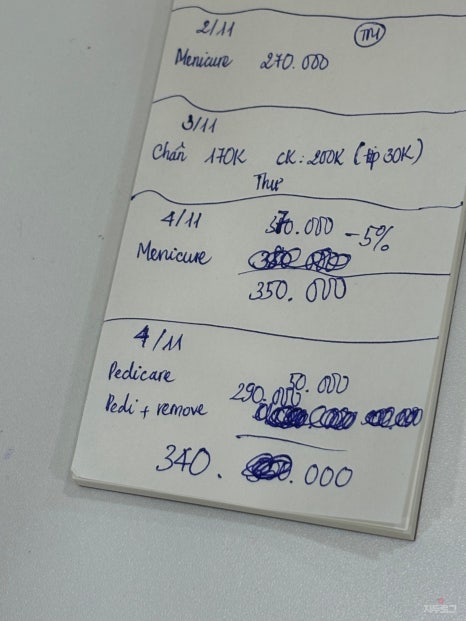 2/11 TM
Menicure 270.000
3/11
Chân 170K CK: 200K (tip 30K)
Thư
4/11 370.000 -5%
Menicure
350.000
4/11
Pedicare 50.000
Pedi + remove 290.000
340. .000